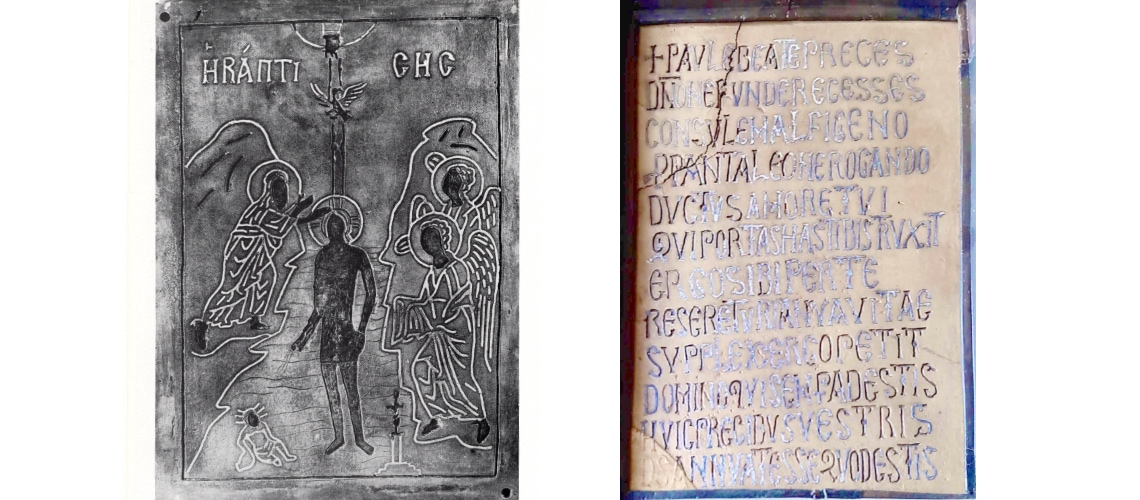 ἩΒΆΠΤΙ CΗC
+PAVLE BEATE PRECES
DNO NE FVNDERE CESSES
CONSVLE MALFIGENO
P PANTALEO NE ROGANDO
DVCTVS AMORE TVI
QVI PORTAS HAS TIBI STRVXIT
ERGO SIBI PER TE
RESERETVR IANVA VITAE
SVPPLEX ERGO PETIT
DOMINO QVI SEMP ADESTIS
HVIC PRECIBVS VESTRIS
DS ANNVAT ESSE QVOD ESTIS